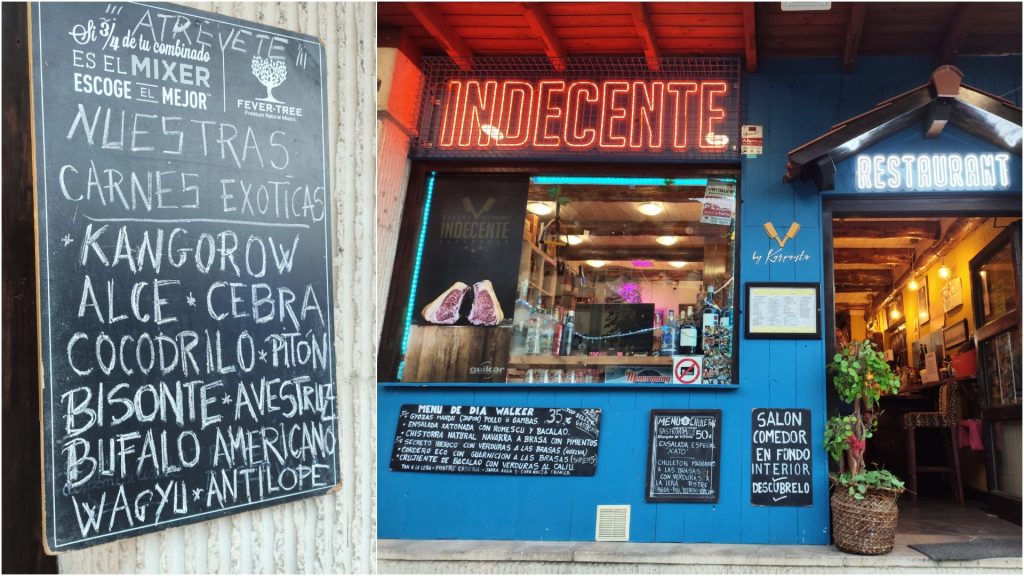 ATREVETE!!!
Si ¾ de tu combinado
ES EL MIXER
ESCOGE EL MEJOR
FEVER-TREE
Premium Natural Mixers
NUESTRAS
CARNES EXOTICAS
* KANGOROW
ALCE * CEBRA
COCODRILO * PITÓN
BISONTE * AVESTRUZ
BUFALO AMERICANO
WAGYU * ANTÍLOPE
INDECENTE
RESTAURANT
INDECENTE
by Karpanta
verisure
guikar
MENU DE DIA WALKER 35,-
GYOZAS MANDU (JAPON) POLLO Ó GAMBAS
* ENSALADA XATONADA CON ROMESCU Y BACALAO
* CHISTORRA NATURAL NAVARRA A BRASA CON PIMIENTOS
* SECRETO IBERICO CON VERDURAS A LAS BRASAS (HUELVA)
* CORDERO ECO CON GUARNICION A LAS BRASAS
* CRUJIENTE DE BACALAO CON VERDURAS AL CALIU
PAN A LA LEÑA * POSTRE
MENU CHULETON
50€
ENSALADA
XATO
CHULETON MADURADO
A LAS BRASAS
CON VERDURAS A
LA LEÑA POSTRE
SALON
COMEDOR
EN FONDO
INTERIOR
DESCÚBRELO